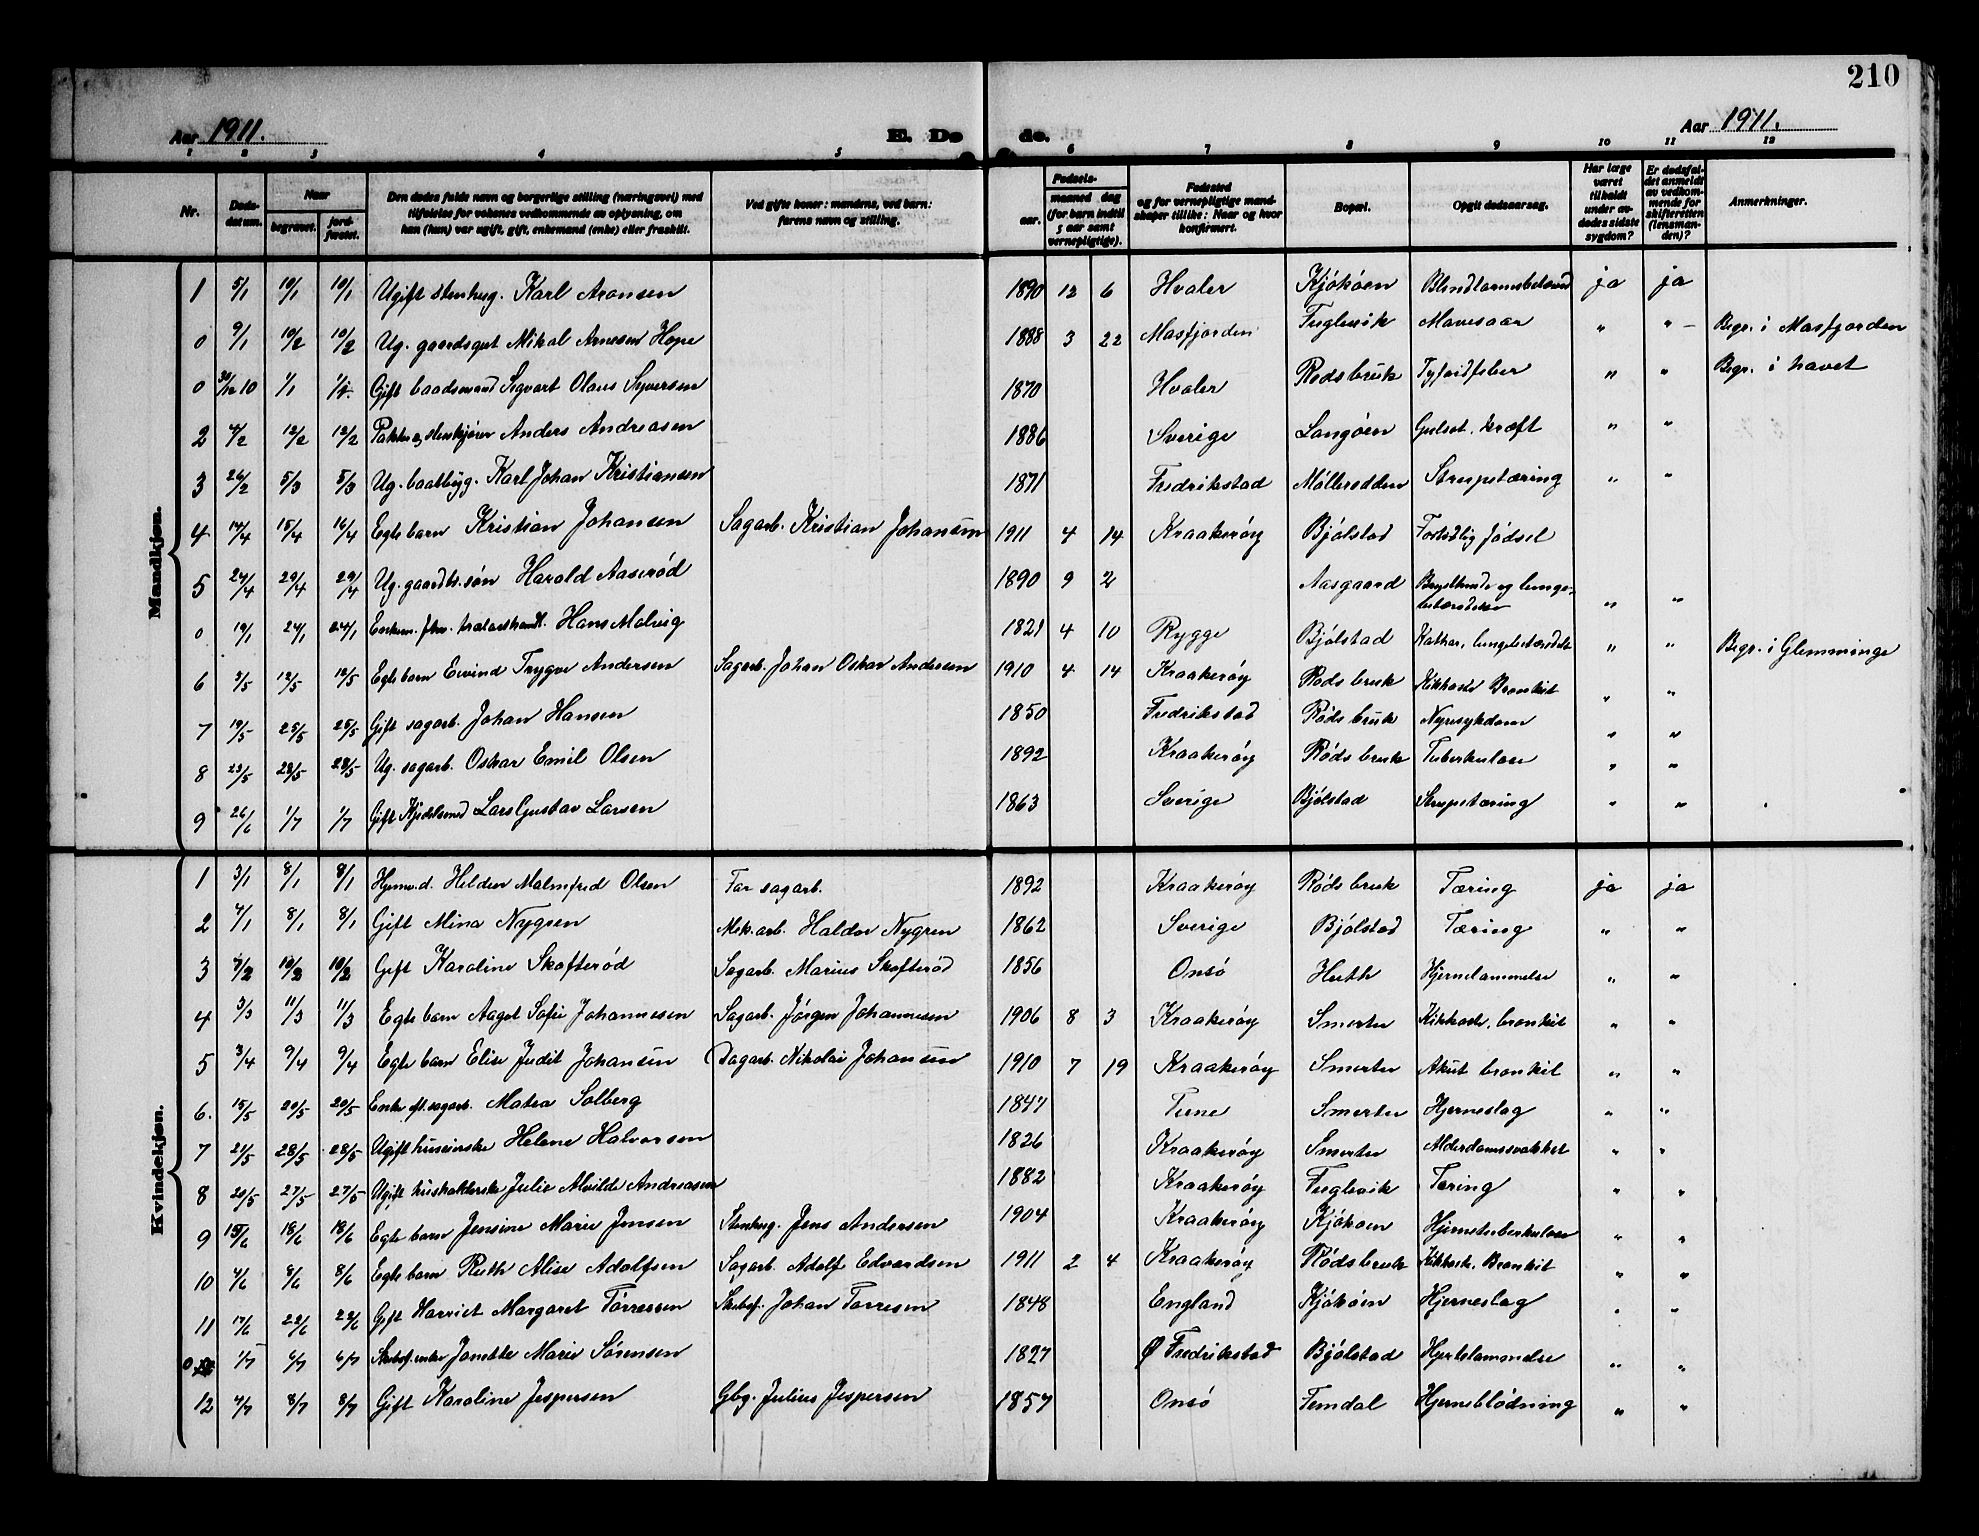 210
Aar 1911. E. Dø de. Aar 1911.
1 2 3 4 5 6 7 8 9 10 11 12
Nr. Døds-datum. Naar begravet. jord-fæstet. Den dødes fulde navn og borgerlige stilling (næringsvei) med tilføielse for voksnes vedkommende av oplysning, om han (hun) var ugift, gift, enkemand (enke) eller fraskilt. Ved gifte koner: mandens, ved barn: farens navn og stilling. Fødsels- aar. maaned dag (for barn indtil 5 aar samt vernepligtige). Fødested og for vernepligtige mandskaper tillike: Naar og hvor konfirmert. Bopæl. Opgit dødsaarsag. Har læge været tilkaldt under avdødes sidste sygdom? Er dødsfaldet anmeldt av vedkommende for skifteretten (lensmanden)? Anmerkninger.
Mandkjøn.
1 5/1 10/1 10/1 Ugift stenhug. Karl Aronsen 1890 12 6 Hvaler Kjøkøen Blindtarmsbetænd ja ja
0 9/1 10/2 10/2 Ug. gaardsgut Mikal Arnesen Hope 1888 3 22 Masfjorden Fuglevik Mavesaar " " – Begr. i Masfjorden
0 30/12 10 1/1 1/1 Gift baadsmand Sigvart Olaus Syversen 1870 Hvaler Rødsbruk Tyfoidfeber " " Begr. i havet
2 4/2 12/2 12/2 Anders Andreasen 1886 Sverige Langøen Gulsot, kræft " "
3 26/2 5/3 5/3 Ug. baatbyg. Karl Johan Kristiansen 1871 Fredrikstad Mølleroddem Strupetæring " "
4 14/4 15/4 16/4 Egte barn Kristian Johansen Sagarb. Kristian Johansen 1911 4 14 Kraakerøy Bjølstad Fortidlig fødsel
5 24/4 29/4 29/4 Ug. gaardbr. søn Harald Aaserød 1890 9 2 Aasgaard Brysthinde og lunge-
betændelse " "
0 19/1 24/1 24/1 Enkem. Hans Malvig 1821 4 10 Rygge Bjølstad Kathar, lungebetændelse " " Begr. i Glemminge
6 3/5 12/5 12/5 Egte barn Eivind Trygve Andersen Sagarb. Johan Oskar Andersen 1910 4 14 Kraakerøy Røds bruk Kikhoste Bronkit " "
7 19/5 25/5 25/5 Gift sagarb. Johan Hansen 1850 Fredrikstad Røds bruk Nyresykdom " "
8 23/5 28/5 28/5 Ug. sagarb. Oskar Emil Olsen 1892 Kraakerøy Røds bruk Tuberkulose " "
9 26/6 1/7 1/7 Gift Kjedelsmed Lars Gustav Larsen 1863 Sverige Bjølstad Strupetæring " "
Kvindekjøn.
1 3/1 8/1 8/1 Hjemv. d. Helder Malmfred Olsen Far sagarb. 1892 Kraakerøy Røds bruk Tæring ja ja
2 4/1 8/1 8/1 Gift Mina Nygren Mek. arb. Haldor Nygren 1862 Sverige Bjølstad Tæring " "
3 7/2 10/2 10/2 Gift Karoline Skofterød Sagarb. Marius Skofterød 1856 Onsø Huth Hjernelammelse " "
4 3/3 11/3 11/3 Egte barn Aagot Sofie Johannesen Sagarb. Jørgen Johannesen 1906 8 3 Kraakerøy Smerter Kikhoste, bronkit " "
5 3/4 9/4 9/4 Egte barn Elise Judit Johansen Sagarb. Nikolai Johansen 1910 7 19 Kraakerøy Smerter Akut bronkit " "
6. 15/5 20/5 20/5 Enke eft. sagarb. Matea Solberg 1847 Tune Smerter Hjerneslag " "
7 24/5 28/5 28/5 Ugift huseierske Helene Halvorsen 1826 Kraakerøy Smerter Alderdomssvakhet " "
8 20/5 27/5 27/5 Ugift husholderske Julie Alvilde Andreasen 1882 Kraakerøy Fuglevik Tæring " "
9 15/6 18/6 18/6 Egte barn Jensine Marie Jensen Stenhug. Jens Andersen 1904 Kraakerøy Kjøkøen Hjernetuberkulose " "
10 4/6 8/6 8/6 Egte barn Ruth Alise Adolfsen Sagarb. Adolf Edvardsen 1911 2 4 Kraakerøy Rødsbruk Kikhoste, Bronkit " "
11 17/6 22/6 22/6 Gift Harriet Margaret Tørresen Skibsf. Johan Tørresen 1848 England Kjøkøen Hjerneslag " "
0 1/7 6/7 6/7 Skibsf. enke Janette Marie Sørensen 1827 Ø Fredrikstad Bjølstad Hjertelammelse " "
12 4/7 8/7 8/7 Gift Karoline Jespersen Gbg. Julius Jespersen 1857 Onsø Femdal Hjerneblødning " "